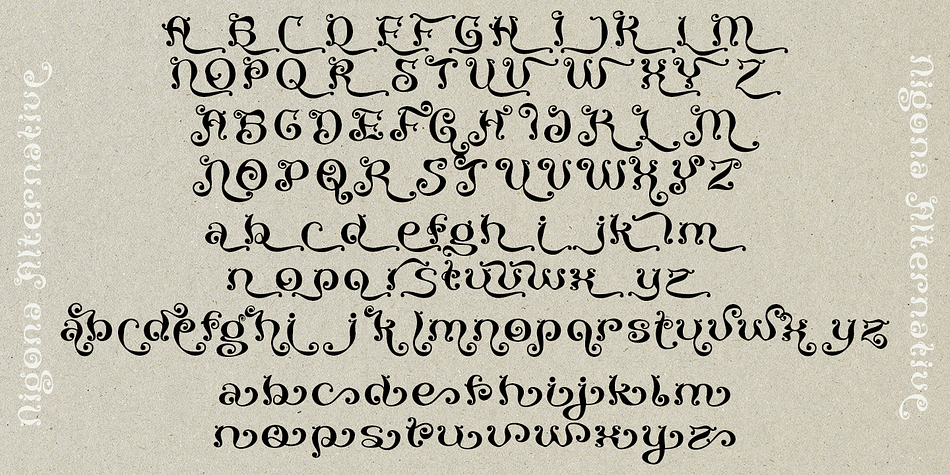 Nigona Alternative
A B C D E F G H I J K L M
N O P Q R S T U V W X Y Z
A B C D E F G H I J K L M
N O P Q R S T U V W X Y Z
a b c d e f g h i j k l m
n o p q r s t u v w x y z
a b c d e f g h i j k l m n o p q r s t u v w x y z
a b c d e f h i j k l m
n o p s t u v w x y z
Nigona Alternative